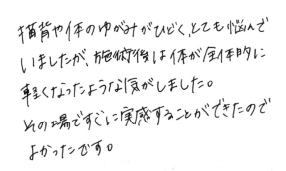 猫背や体のゆがみがひどく、とても悩んで
いましたが、施術後は体が全体的に
軽くなったような気がしました。
その場ですぐに実感することができたので
よかったです。